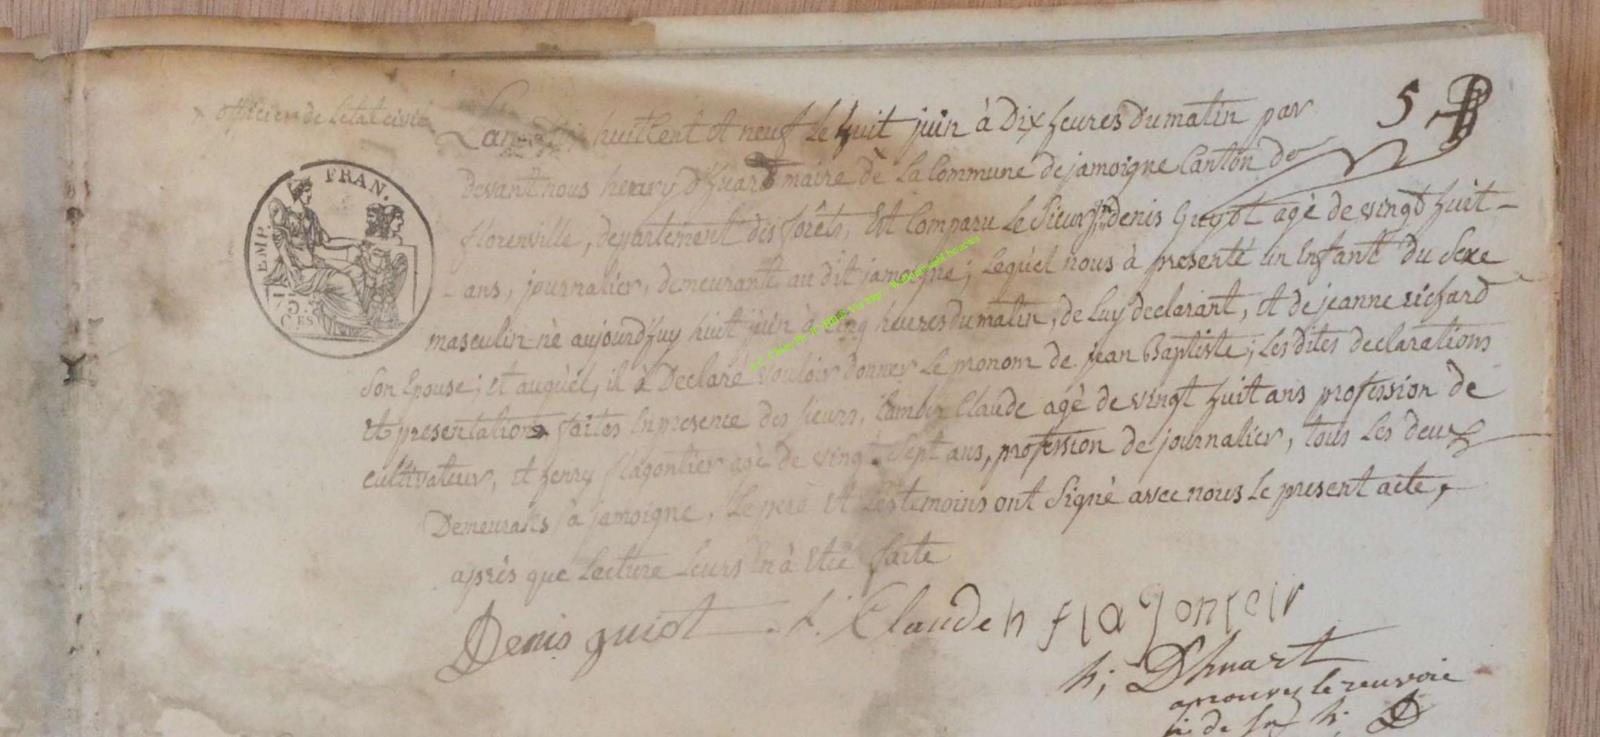 officier de l'etat civil
5
L'an mil huit cent et neuf le huit juin à dix heures du matin par
devant nous henry d'huart maire de la commune de jamoigne canton de
florenville, departement des forêts, est comparu le sieur denis Guiot agè de vingt huit
ans, journalier, demeurant au dit jamoigne; lequel nous à presenté un enfant du sexe
masculin nè aujourd'huy huit juin à cinq heures du matin, de luy declarant, et de jeanne richard
son epouse; et auquel, il à declaré vouloir donner le prenom de jean Baptiste; les dites declarations
et presentations faites en presence des sieurs, lamber Claude agè de vingt huit ans profession de
cultivateur, et henry flagontier agè de vingt sept ans, profession de journalier, tous les deux
Demeurants à jamoigne, le pere et les temoins ont signé avec nous le present acte,
après que lecture leurs en à etée faite
Denis guiot L. Claude h flagontier
h; D'huart
approuvez le renvoie
FRAN.
EMP.
75
CES